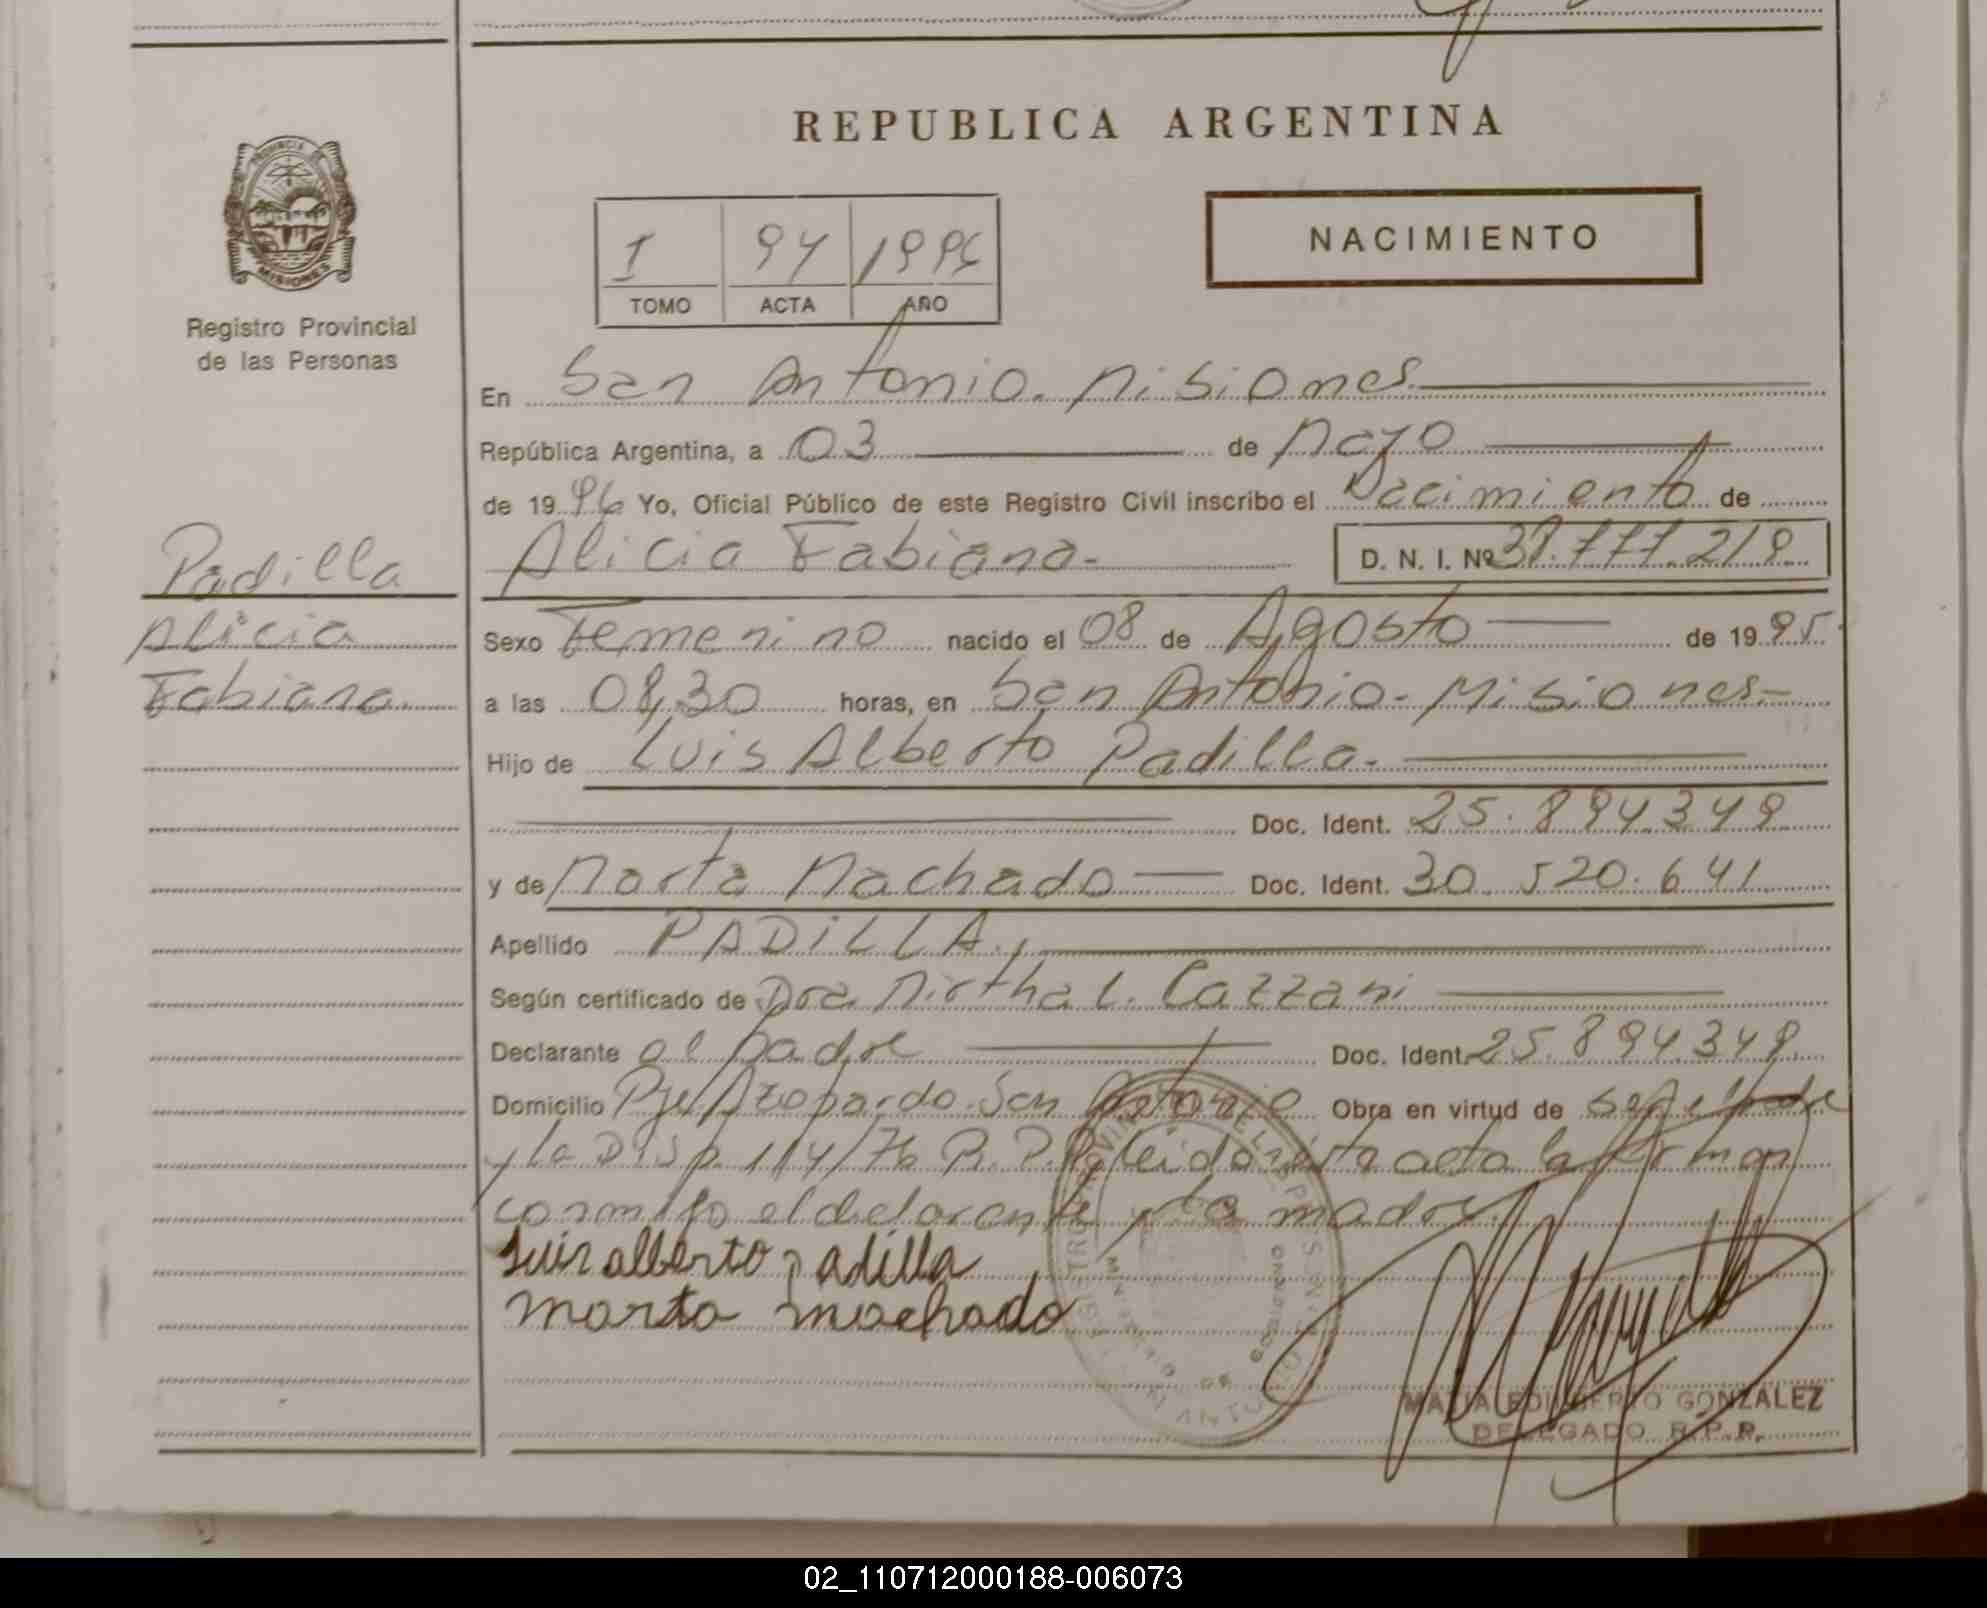 REPUBLICA ARGENTINA
PROVINCIA DE
MISIONES
Registro Provincial
de las Personas
I 94 1996
TOMO ACTA AÑO
NACIMIENTO
En San Antonio. Misiones.
República Argentina, a 03 de Mayo
de 1996 Yo, Oficial Público de este Registro Civil inscribo el Nacimiento de
Padilla
Alicia
Fabiana.
Alicia Fabiana. D. N. I. Nº 39.777.218
Sexo Femenino nacido el 08 de Agosto de 1995.
a las 08,30 horas, en San Antonio - Misiones-
Hijo de Luis Alberto Padilla.
Doc. Ident. 25.894349
y de Marta Machado Doc. Ident. 30.520.641
Apellido PADILLA.
Según certificado de Dra. Mirtha L. Cazzani
Declarante el padre Doc. Ident. 25.894.349
Domicilio Pje Azopardo. San Antonio Obra en virtud de ser el padre
y la Disp. 114/76 R.P.P. Leída esta acta la firman
conmigo el declarante y la madre.
Luis alberto padilla
marta machado
MINISTERIO DE GOBIERNO
GONZALEZ
DELEGADO R.P.P.
02_110712000188-006073